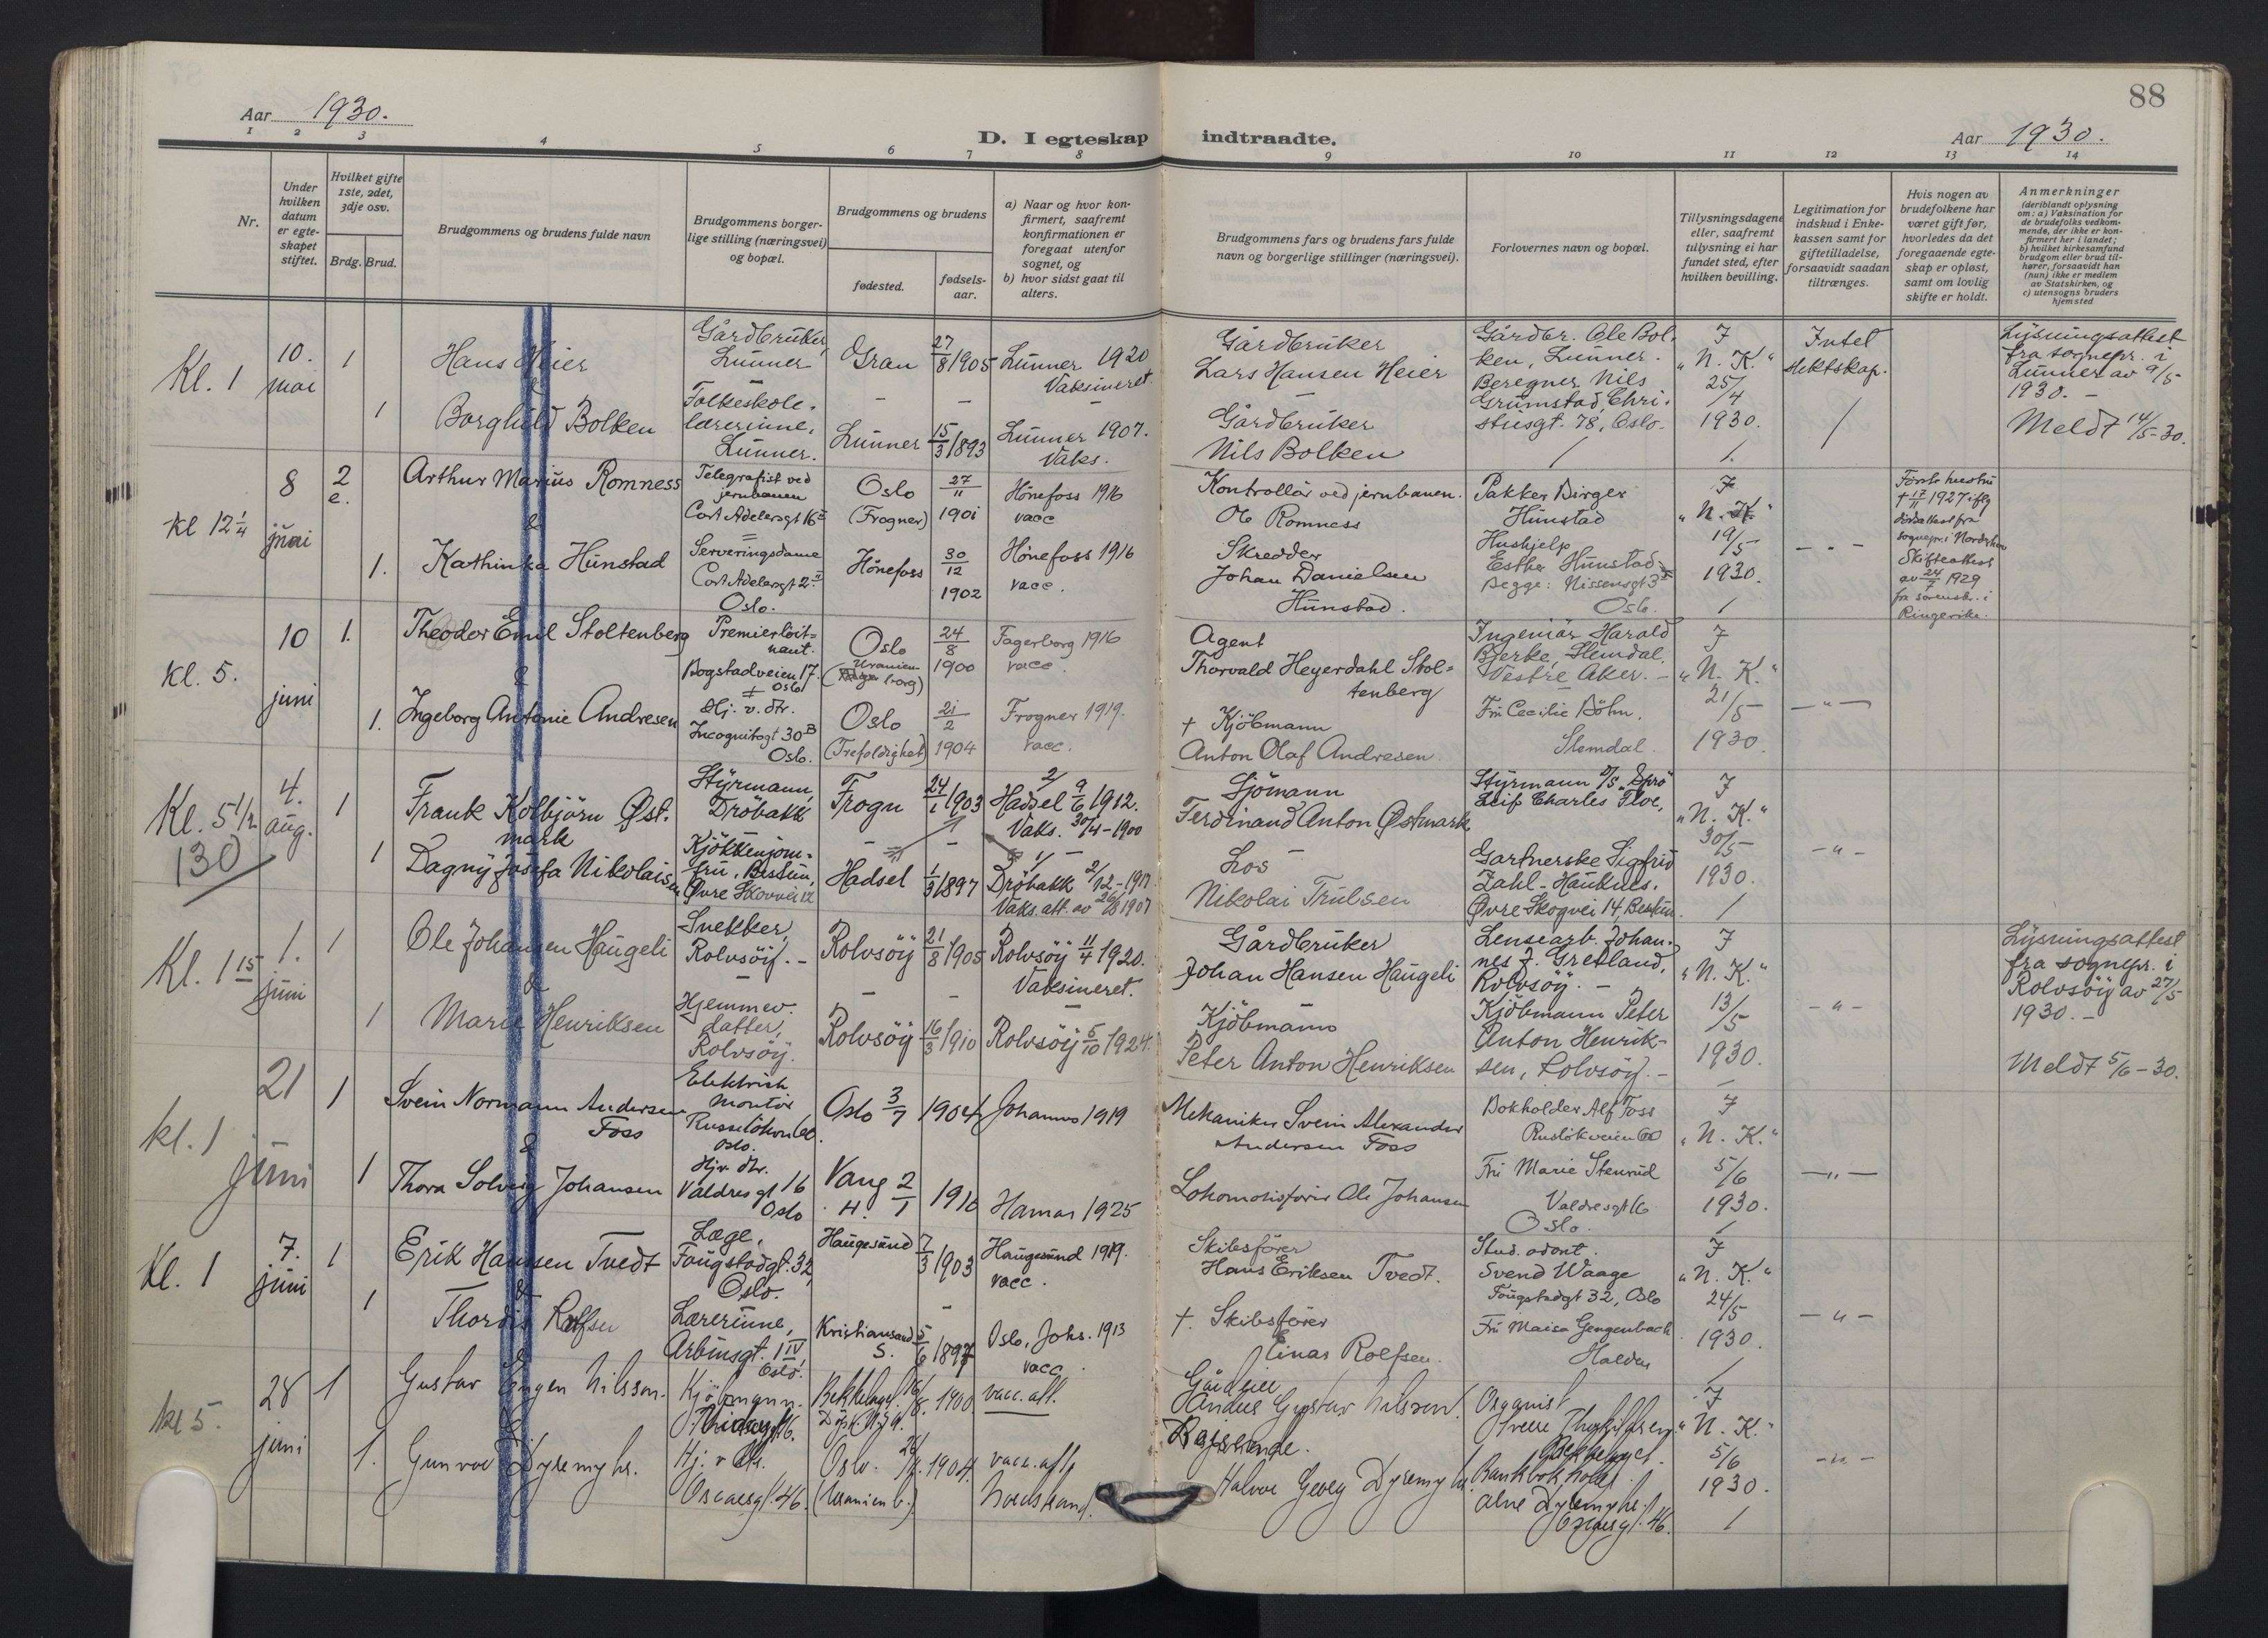 88
Aar 1930.
D. I egteskap indtraadte.
Aar 1930.
1 2 3 4 5 6 7 8 9 10 11 12 13 14
Nr.
Under
hvilken
datum
er egte-
skapet
stiftet.
Hvilket gifte
1ste, 2det,
3dje osv.
Brdg. Brud.
Brudgommens og brudens fulde navn
Brudgommens borger-
lige stilling (næringsvei)
og bopæl.
Brudgommens og brudens
fødested.
fødsels-
aar.
a) Naar og hvor kon-
firmert, saafremt
konfirmationen er
foregaat utenfor
sognet, og
b) hvor sidst gaat til
alters.
Brudgommens fars og brudens fars fulde
navn og borgerlige stillinger (næringsvei).
Forlovernes navn og bopæl.
Tillysningsdagene
eller, saafremt
tillysning ei har
fundet sted, efter
hvilken bevilling.
Legitimation for
indskud i Enke-
kassen samt for
giftetilladelse,
forsaavidt saadan
tiltrænges.
Hvis nogen av
brudefolkene har
været gift før,
hvorledes da det
foregaaende egte-
skap er opløst,
samt om lovlig
skifte er holdt.
Anmerkninger
(deriblandt oplysning
om: a) Vaksination for
de brudefolks vedkom-
mende, der ikke er kon-
firmert her i landet;
b) hvilket kirkesamfund
brudgom eller brud til-
hører, forsaavidt han
(hun) ikke er medlem
av Statskirken, og
c) utensogns bruders
hjemsted
Kl. 1
10.
mai
1
Hans Heier
&
1
Borghild Bolken
Gårdbruker,
Lunner
Folkeskole-
lærerinne,
Lunner.
Gran
27/8 1905
Lunner 1920
Vaksineret
Lunner
15/3 1893
Lunner 1907.
Vaks.
Gårdbruker
Lars Hansen Heier
Gårdbruker
Nils Bolken
Gårdbr. Ole Bol-
ken, Lunner.
Beregner Nils
Grimstad, Chri-
stiesgt. 78, Oslo.
I
"N. K."
25/4
1930.
Intet
slektskap.
Lysningsattest
fra sognepr. i
Lunner av 9/5
1930. -
Meldt 14/5-30.
kl 12 1/4
8
juni
2
e.
Arthur Marius Romness
&
1.
Kathinka Hunstad
Telegrafist ved
jernbanen
Cort Adelersgt 16 II
Serveringsdame
Cort Adelersgt 2 II
Oslo.
Oslo
(Frogner)
27/11
1901
Hønefoss 1916
vacc
Hønefoss
30/12
1902
Hønefoss 1916
vacc.
Kontrollør ved jernbanen.
Ole Romness
Skredder
Johan Danielsen
Hunstad.
Pakker Birger
Hunstad
Hushjelp
Esther Hunstad
Begge: Nissensgt 3
Oslo.
I
"N. K."
19/5
1930.
Første hustru
† 17/11 1927 iflg
dødsattest fra
sognepr. i Norderhov
Skifteattest
av 24/7 1929
fra sorenskr. i
Ringerike.
kl. 5.
10
juni
1.
Theodor Emil Stoltenberg
&
1.
Ingeborg Antonie Andresen
Premierløit-
nant.
Bogstadveien 17.
Oslo
Hj. v. dtr.
Incognitogt 30 B
Oslo.
Oslo
(Uranien-
borg)
24/8
1900
Fagerborg 1916
vacc.
Oslo
(Trefoldighet)
21/2
1904
Frogner 1919.
vacc.
Agent
Thorvald Heyerdahl Stol-
tenberg
† Kjøbmann
Anton Olaf Andresen.
Ingeniør Harald
Bjerke, Slemdal.
Vestre Aker. -
Fru Cecilie Bøhn.
Slemdal.
I
"N. K."
21/5
1930.
Kl. 5 1/2
130
4.
aug.
1
Frank Kolbjørn Øst-
mark
1
Dagny Josefa Nikolaisen
Styrmann,
Drøbakk
Kjøkkenjom-
fru, Bestun,
Øvre Skovvei 12
Frogn
24/1 1903
2/
Hadsel 9/6 1912.
Vaks. 30/4-1900
Hadsel
1/3 1897
1/
Drøbakk 2/12-1917
Vaks. att. av 26/8 1907
Sjømann
Ferdinand Anton Østmark
Los
Nikolai Trulssen
Styrmann D/S "Spro"
Leif Charles Floe,
Gartnerske Sigfrid
Zahl-Hauknes.
Øvre Skogvei 14, Bestun.
I
"N. K."
30/5
1930.
Kl. 1 15
1.
juni
1
Ole Johansen Haugeli
&
1
Marie Henriksen
Snekker,
Rolvsøy. -
Hjemmev.
datter,
Rolvsøy.
Rolvsøy
21/8 1905
Rolvsøy 11/4 1920.
Vaksineret.
Rolvsøy
16/3 1910
Rolvsøy 5/10 1924.
Gårdbruker
Johan Hansen Haugeli
Kjøbmann
Peter Anton Henriksen
Lensearb. Johan-
nes J. Gretland,
Rolvsøy. -
Kjøbmann Peter
Anton Henrik-
sen, Rolvsøy. -
I
"N. K."
13/5
1930.
Lysningsattest
fra sognepr. i
Rolvsøy av 27/5
1930. -
Meldt 5/6-30.
kl. 1
21
juni
1
Svein Normann Andersen
Foss
&
1
Thora Solveig Johansen
Elektrisk
montør
Russeløkvn 60.
Oslo.
Hjv. dtr.
Valdresgt 16
Oslo
Oslo 3/7 1904
Johannes 1919
Vang 2/1 1910
H.
Hamar 1925
Mekaniker Svein Alexander
Andersen Foss
Lokomotivfører Ole Johansen
Bokholder Alf Foss
Rusløkveien 60
Fru Marie Stenrud
Valdresgt 16
Oslo.
I
"N. K."
5/6
1930.
Kl. 1
7.
juni
1
Erik Hanssen Tvedt
&
1
Thordis Rolfsen
Læge,
Fougstadgt. 32,
Oslo.
Lærerinne,
Arbinsgt. 1 IV,
Oslo.
Haugesund
7/3 1903
Haugesund 1919.
vacc.
Kristiansand
S.
5/6 1897
Oslo, Johs. 1913
vacc.
Skibsfører
Hans Eriksen Tvedt.
†. Skibsfører
Einar Rolfsen.
Stud. odont.
Svend Waage
Fougstadgt 32, Oslo
Fru Maisa Gengenbach
Halden
I
"N. K."
24/5
1930.
kl 5.
28
juni
1
Gustav Engen Nilsson.
&
1.
Gunvor Dyremyhr.
Kjøbmann.
Hj. v dtr.
Oscarsgt. 46.
Bekkelaget
1900
vacc. att.
Oslo.
(Uranienb.)
1904.
vacc. att.
Nordstrand.
Gårdeier
Andus Gustav Nilsson.
Reisende.
Halvor Georg Dyremyhr
Organist
Sverre Thorkildsen
Bekkelaget.
Bankbokholder
Arne Dyremyhr
Oscarsgt. 46.
I
"N. K."
5/6
1930.